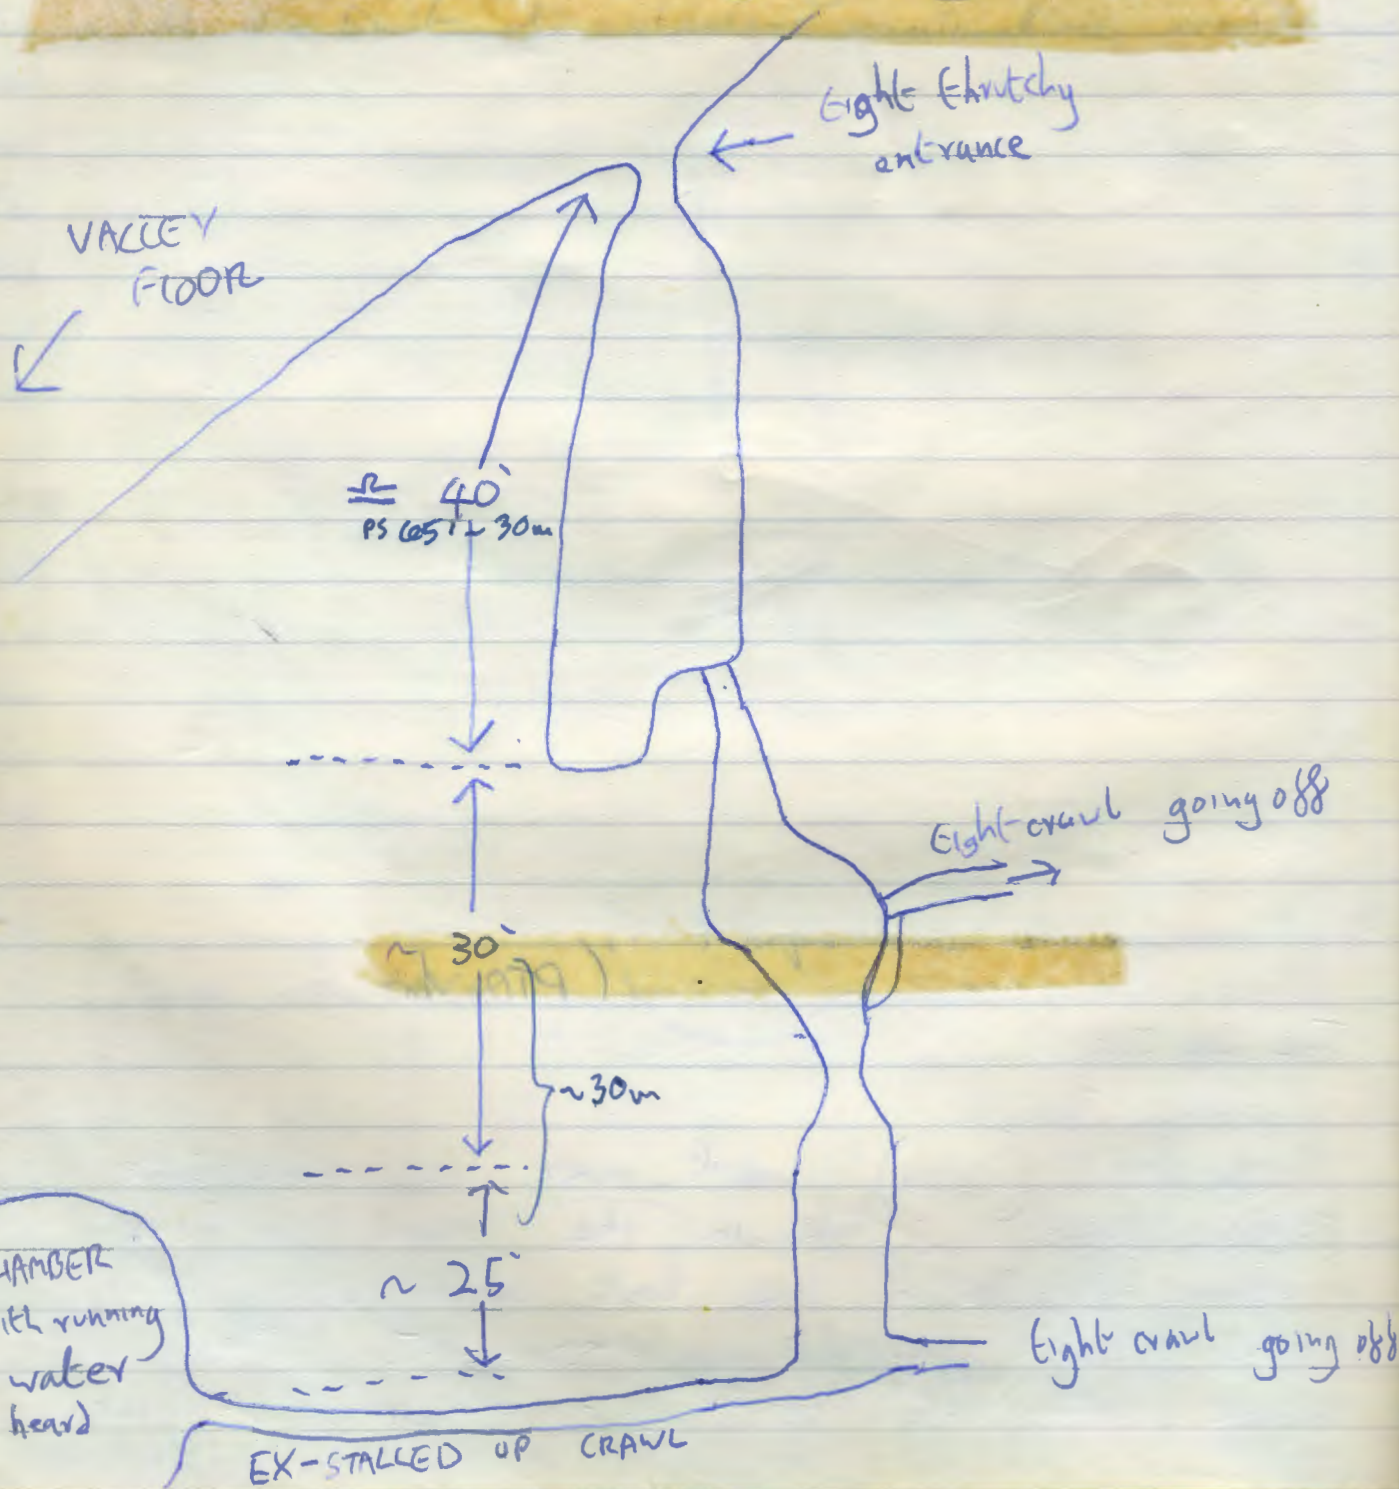 tight thrutchy
entrance
VALLEY
FLOOR
40'
30m
tight crawl going off
~ 30'
~30m
~ 25'
CHAMBER
with running
water
heard
tight crawl going off
EX-STALLED UP CRAWL